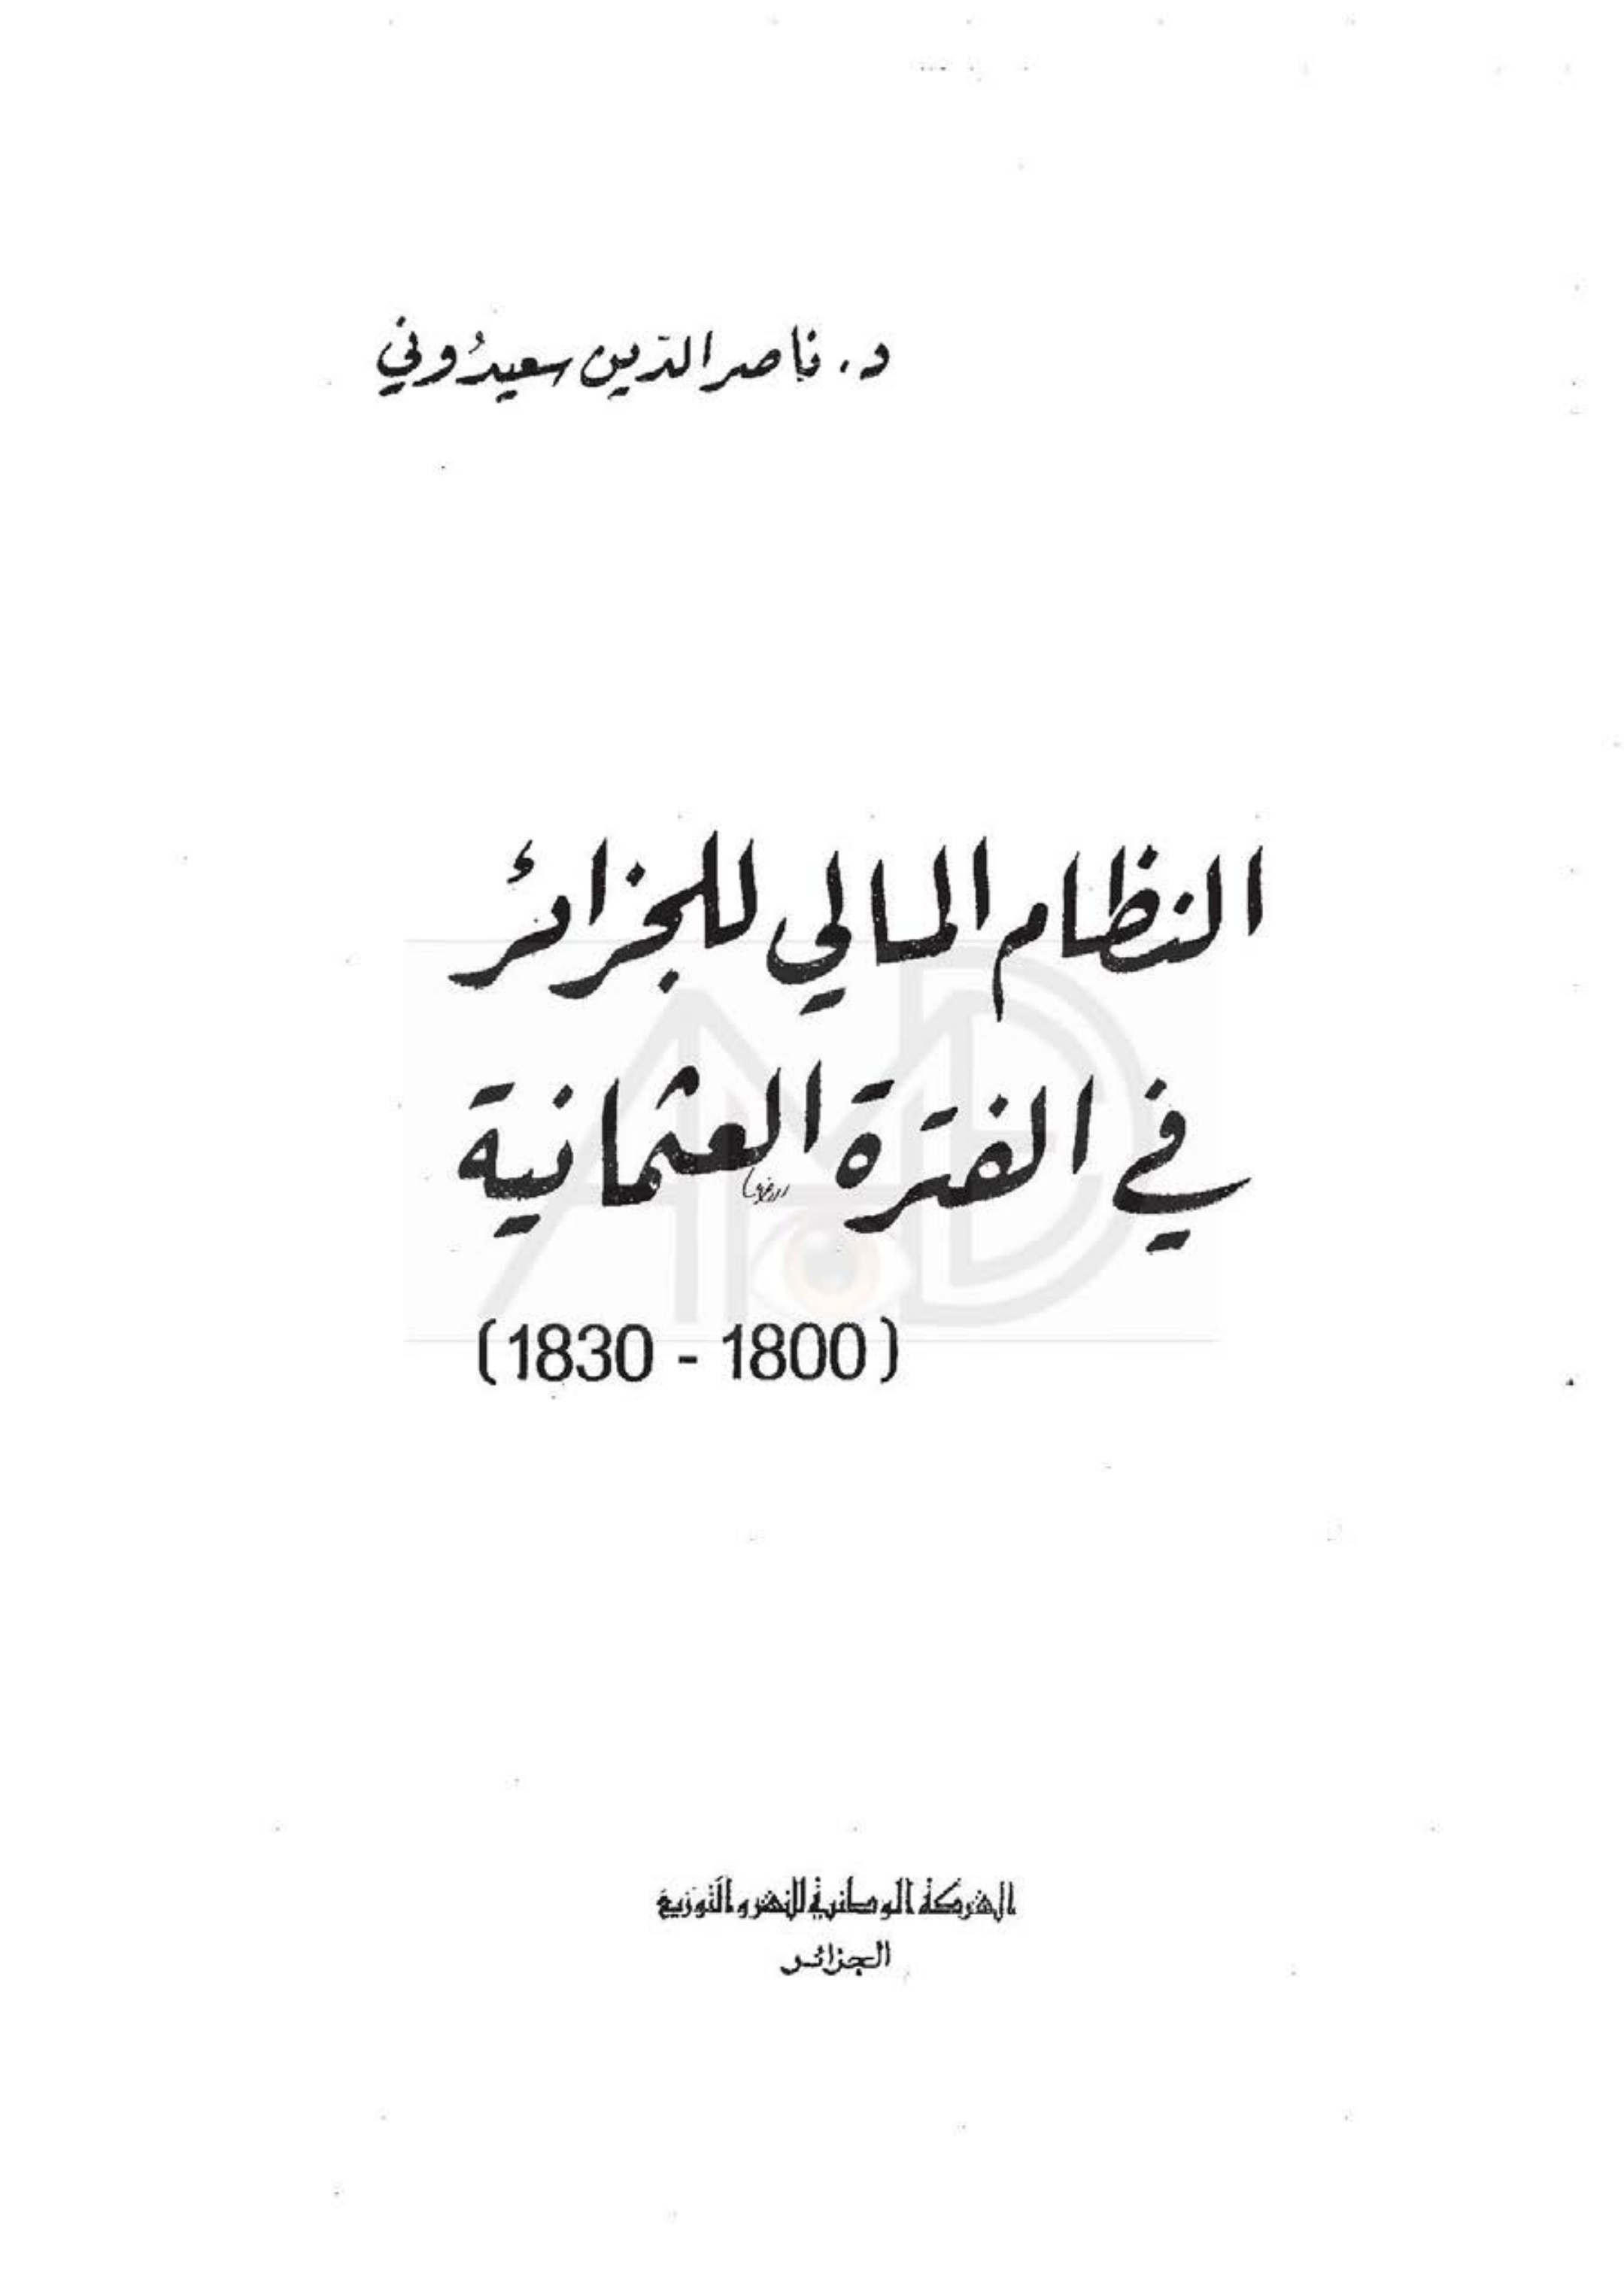 د. ناصر الدّين سعيدُوني
النظام المالي للجزائر
في الفترة العثمانية
(1800 - 1830)
الشركة الوطنية للنشر والتوزيع
الجزائر